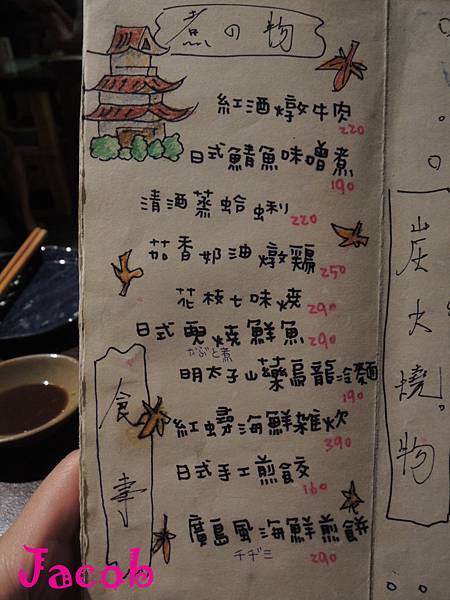 煮の物
紅酒燉牛肉
220
日式鯖魚味噌煮
190
清酒蒸蛤蜊
220
茄香奶油燉鶏
250
花枝七味燒
290
日式兜燒鮮魚
290
かぶと煮
食事
明太子山藥烏龍冷麵
190
紅蟳海鮮雑炊
390
日式手工煎餃
160
廣島風海鮮煎餅
290
チヂミ
炭火燒物
Jacob